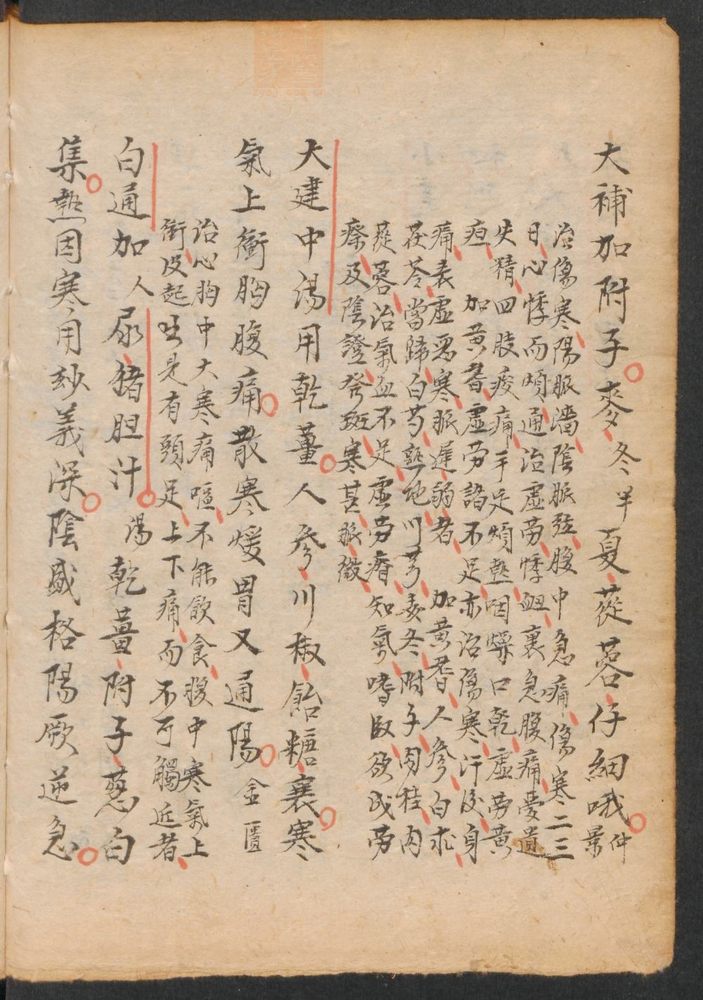 大補加附子麥冬半夏蓯蓉仔細哦仲景
治傷寒陽脈濇陰脈弦腹中急痛傷寒二三
日心悸而煩通治虛勞悸衄裏急腹痛夢遺
失精四肢痠痛手足煩熱咽燥口乾虛勞黃
疸 加黃耆虛勞諸不足亦治傷寒汗後身
痛表虛惡寒脈遲弱者 加黃耆人參白朮
茯苓當歸白芍熟地川芎麥冬附子肉桂肉
蓯蓉治氣血不足虛勞瘠知氣嗜臥欲成勞
瘵及陰證發斑寒甚脈微
大建中湯用乾薑人參川椒飴糖襄寒
氣上衝胸腹痛散寒煖胃又通陽金匱
治心胸中大寒痛嘔不能飲食腹中寒氣上
衝皮起出見有頭足上下痛而不可觸近者
白通加人尿豬胆汁湯乾薑附子蔥白
集熱因寒用妙義深陰盛格陽厥逆急